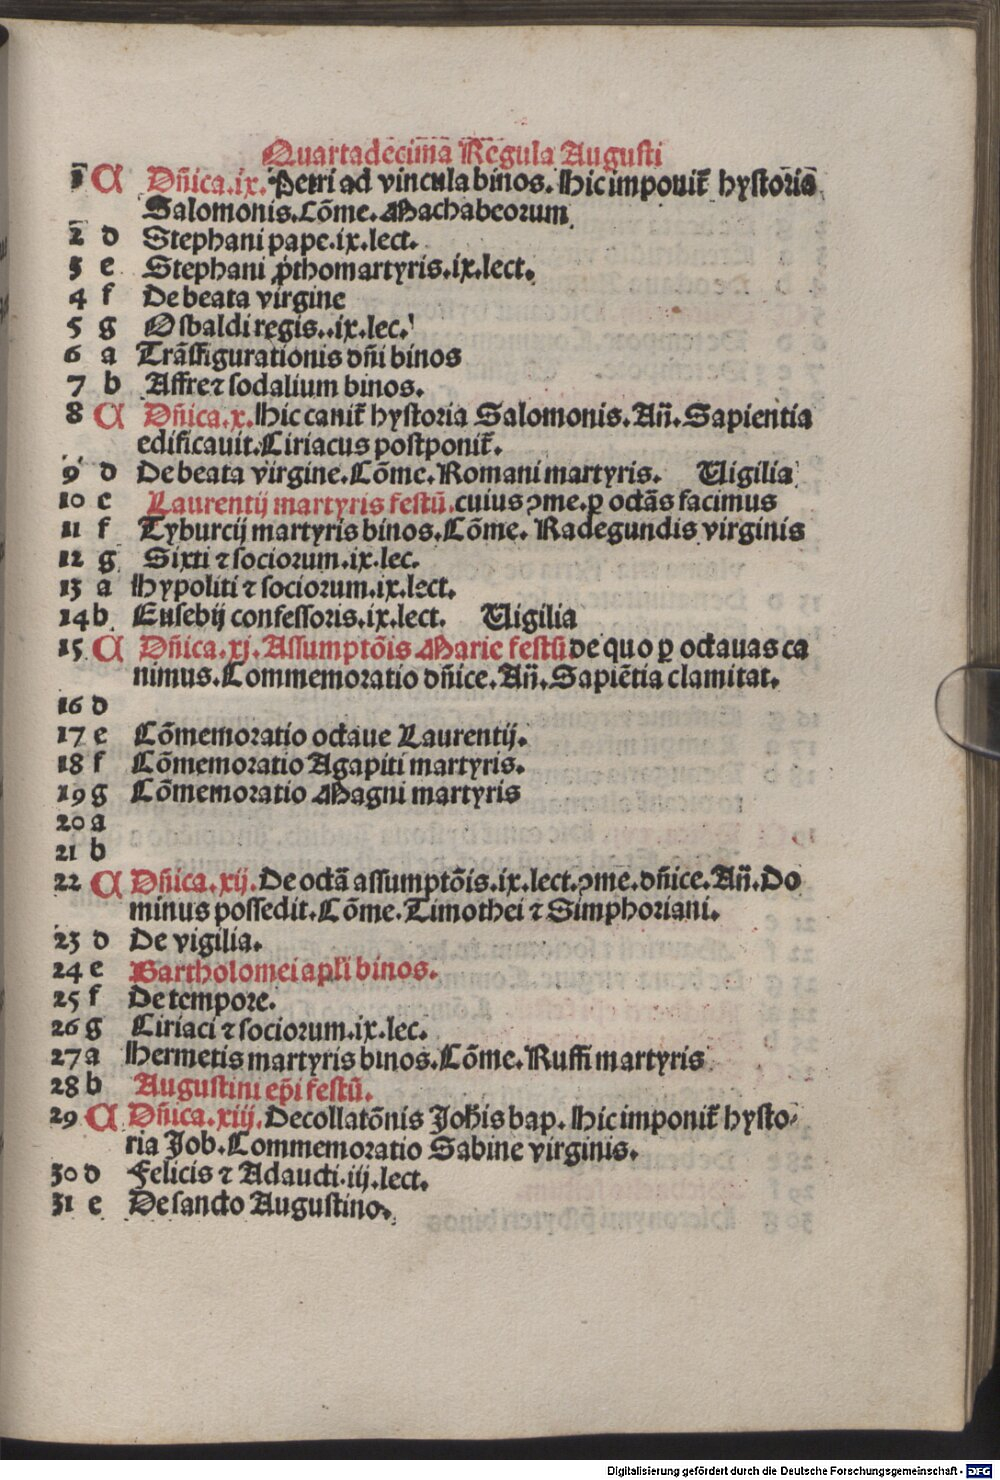 Quartadecima̅ Regula Augusti
1 A Dn̄ica.ix. Petri ad vincula binos. Hic imponit̄ hystoria
Salomonis. Cōme. Machabeorum
2 d Stephani pape.ix.lect.
3 e Stephani p̄thomartyris.ix.lect.
4 f De beata virgine
5 g Osbaldi regis..ix.lec.
6 a Trāsfigurationis dn̄i binos
7 b Affre ⁊ sodalium binos.
8 A Dn̄ica.x. Hic canit̄ hystoria Salomonis. An̄. Sapientia
edificauit. Ciriacus postponit̄.
9 d De beata virgine. Cōme. Romani martyris. Uigilia
10 e Laurentij martyris festū. cuius ꝯme. ꝑ octās facimus
11 f Tyburcij martyris binos. Cōme. Radegundis virginis
12 g Sixti ⁊ sociorum.ix.lec.
13 a Hypoliti ⁊ sociorum.ix.lect.
14 b Eusebij confessoris.ix.lect. Uigilia
15 A Dn̄ica.xj. Assumptōis Marie festū de quo ꝑ octauas ca
nimus. Commemoratio dn̄ice. An̄. Sapiētia clamitat.
16 d
17 e Cōmemoratio octaue Laurentij.
18 f Cōmemoratio Agapiti martyris.
19 g Cōmemoratio Magni martyris
20 a
21 b
22 A Dn̄ica.xij. De octā assumptōis.ix.lect. ꝯme. dn̄ice. An̄. Do
minus possedit. Cōme. Timothei ⁊ Simphoriani.
23 d De vigilia.
24 e Bartholomei apl̄i binos.
25 f De tempore.
26 g Ciriaci ⁊ sociorum.ix.lec.
27 a Hermetis martyris binos. Cōme. Ruffi martyris
28 b Augustini ep̄i festū.
29 A Dn̄ica.xiij. Decollatōnis Joh̄is bap. Hic imponit̄ hysto⸗
ria Job. Commemoratio Sabine virginis.
30 d Felicis ⁊ Adaucti.iij.lect.
31 e De sancto Augustino.
Digitalisierung gefördert durch die Deutsche Forschungsgemeinschaft - DFG